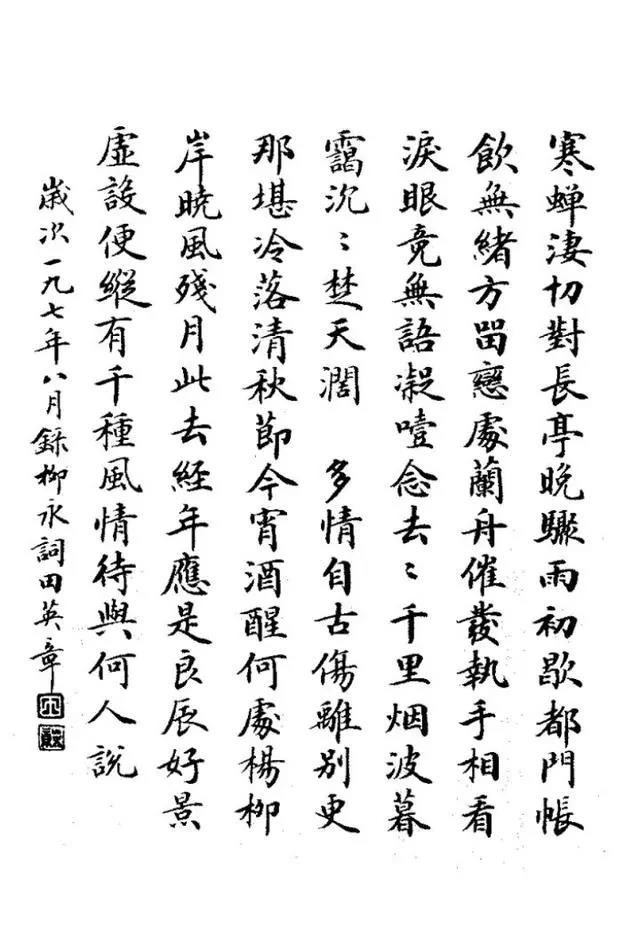 寒蟬淒切對長亭晚驟雨初歇都門帳
飲無緒方留戀處蘭舟催發執手相看
淚眼竟無語凝噎念去〻千里烟波暮
靄沉〻楚天濶 多情自古傷離別更
那堪冷落清秋節今宵酒醒何處楊柳
岸曉風殘月此去經年應是良辰好景
虛設便縱有千種風情待與何人說
歲次一九九七年八月錄柳永詞田英章